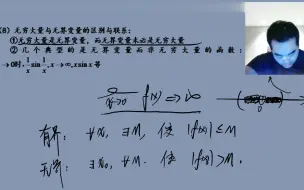 (8) 无穷大量与无界变量的区别与联系:
①无穷大量是无界变量, 而无界变量未必是无穷大量
②几个典型的是无界变量而非无穷大量的函数:
→0时, 1/x sin 1/x, x→∞, x sin x 等
f(x) ⇒ ∞
有界: ∀x, ∃M, 使 |f(x)| ≤ M
无界: ∀M. 使 |f(x)| > M.